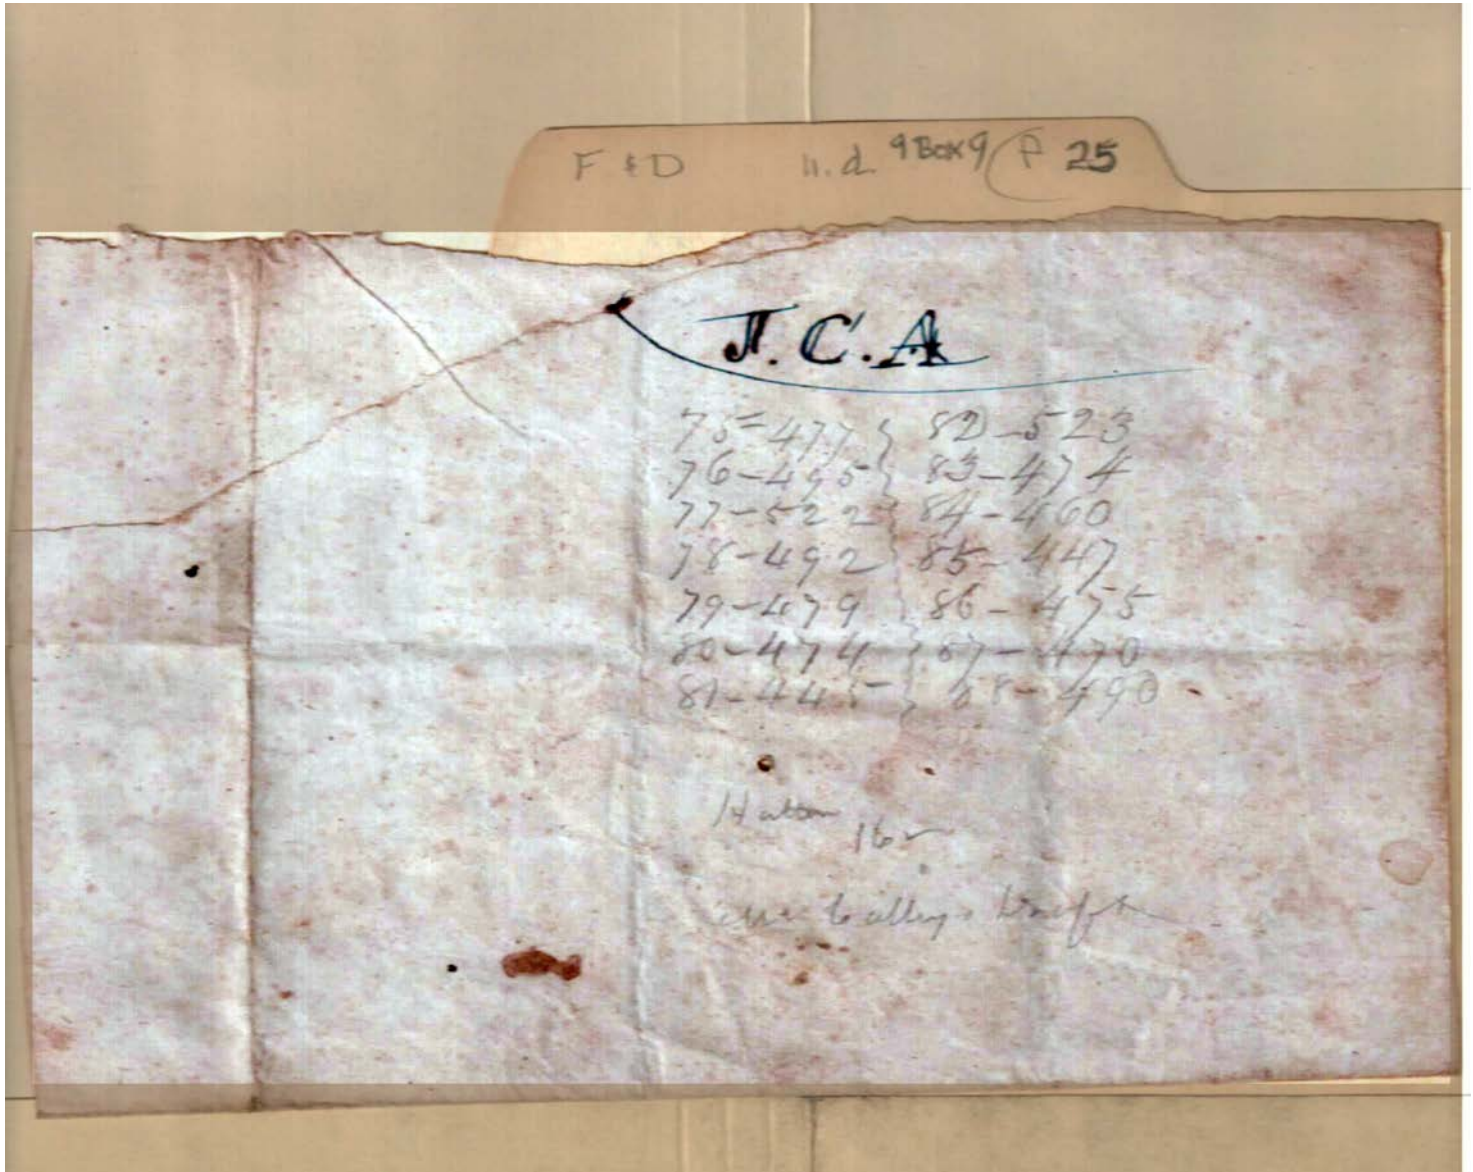 F & D n.d. 9 Box 9 P 25
J.C.A
75-477 } 82-523
76-495 } 83-474
77-522 } 84-460
78-492 } 85-447
79-479 } 86-475
80-474 } 87-470
81-445- } 88-490
Hatton
16